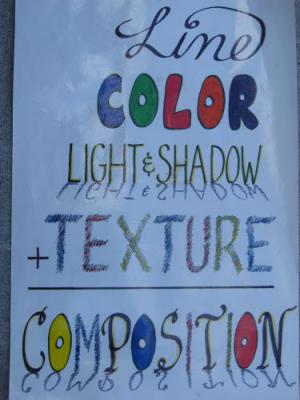 Line
COLOR
LIGHT & SHADOW
+ TEXTURE
COMPOSITION